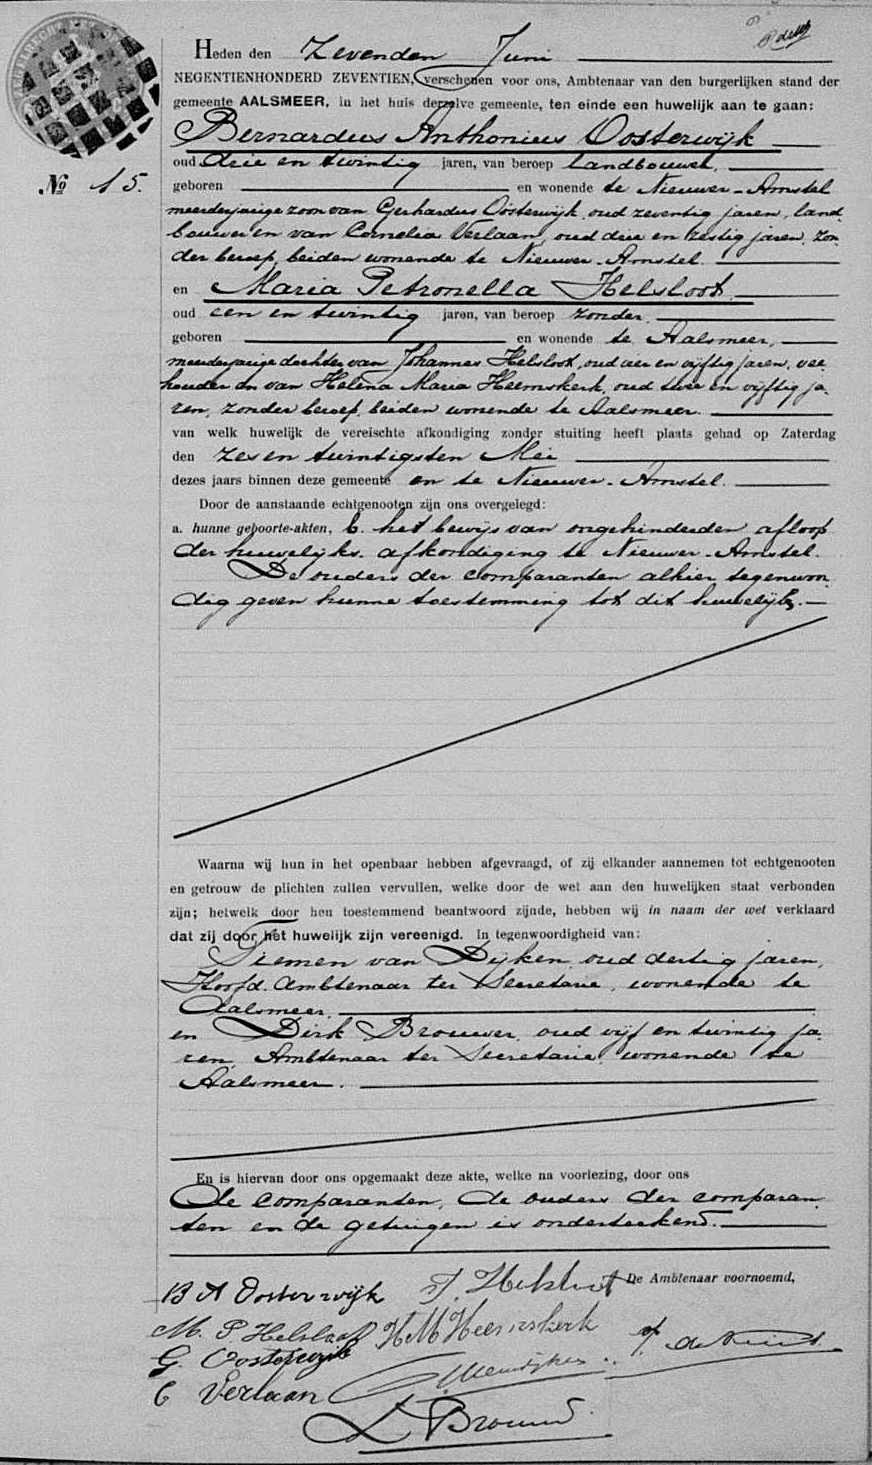 Heden den Zevenden Juni
NEGENTIENHONDERD ZEVENTIEN, verschenen voor ons, Ambtenaar van den burgerlijken stand der
gemeente AALSMEER, in het huis derzelve gemeente, ten einde een huwelijk aan te gaan:
Bernardus Anthonius Oosterwijk
oud drie en twintig jaren, van beroep landbouwer,
Nº 15.
geboren en wonende te Nieuwer-Amstel
meerderjarige zoon van Gerhardus Oosterwijk, oud zeventig jaren, land
bouwer en van Cornelia Verlaan, oud drie en zestig jaren, zon
der beroep, beiden wonende te Nieuwer-Amstel
en Maria Petronella Helsloot,
oud een en twintig jaren, van beroep zonder
geboren en wonende te Aalsmeer,
meerderjarige dochter van Johannes Helsloot, oud vier en vijftig jaren, vee
houder en van Helena Maria Heemskerk, oud twee en vijftig ja
ren, zonder beroep, beiden wonende te Aalsmeer.
van welk huwelijk de vereischte afkondiging zonder stuiting heeft plaats gehad op Zaterdag
den zes en twintigsten Mei
dezes jaars binnen deze gemeente en te Nieuwer-Amstel.
Door de aanstaande echtgenooten zijn ons overgelegd:
a. hunne geboorte-akten, b. het bewijs van ongehinderden afloop
der huwelijks-afkondiging te Nieuwer-Amstel.
De ouders der comparanten alhier tegenwoor
dig geven hunne toestemming tot dit huwelijk.
Waarna wij hun in het openbaar hebben afgevraagd, of zij elkander aannemen tot echtgenooten
en getrouw de plichten zullen vervullen, welke door de wet aan den huwelijken staat verbonden
zijn; hetwelk door hen toestemmend beantwoord zijnde, hebben wij in naam der wet verklaard
dat zij door het huwelijk zijn vereenigd. In tegenwoordigheid van:
Siemen van Dijken, oud dertig jaren,
Hoofd-Ambtenaar ter Secretarie, wonende te
Aalsmeer,
en Dirk Brouwer, oud vijf en twintig ja
ren, Ambtenaar ter Secretarie, wonende te
Aalsmeer.
En is hiervan door ons opgemaakt deze akte, welke na voorlezing, door ons
de comparanten, de ouders der comparan
ten en de getuigen is onderteekend.
De Ambtenaar voornoemd,
B A Oosterwijk J. Helsloot
M. P. Helsloot H M Heemskerk
G. Oosterwijk
C Verlaan
D Brouwer